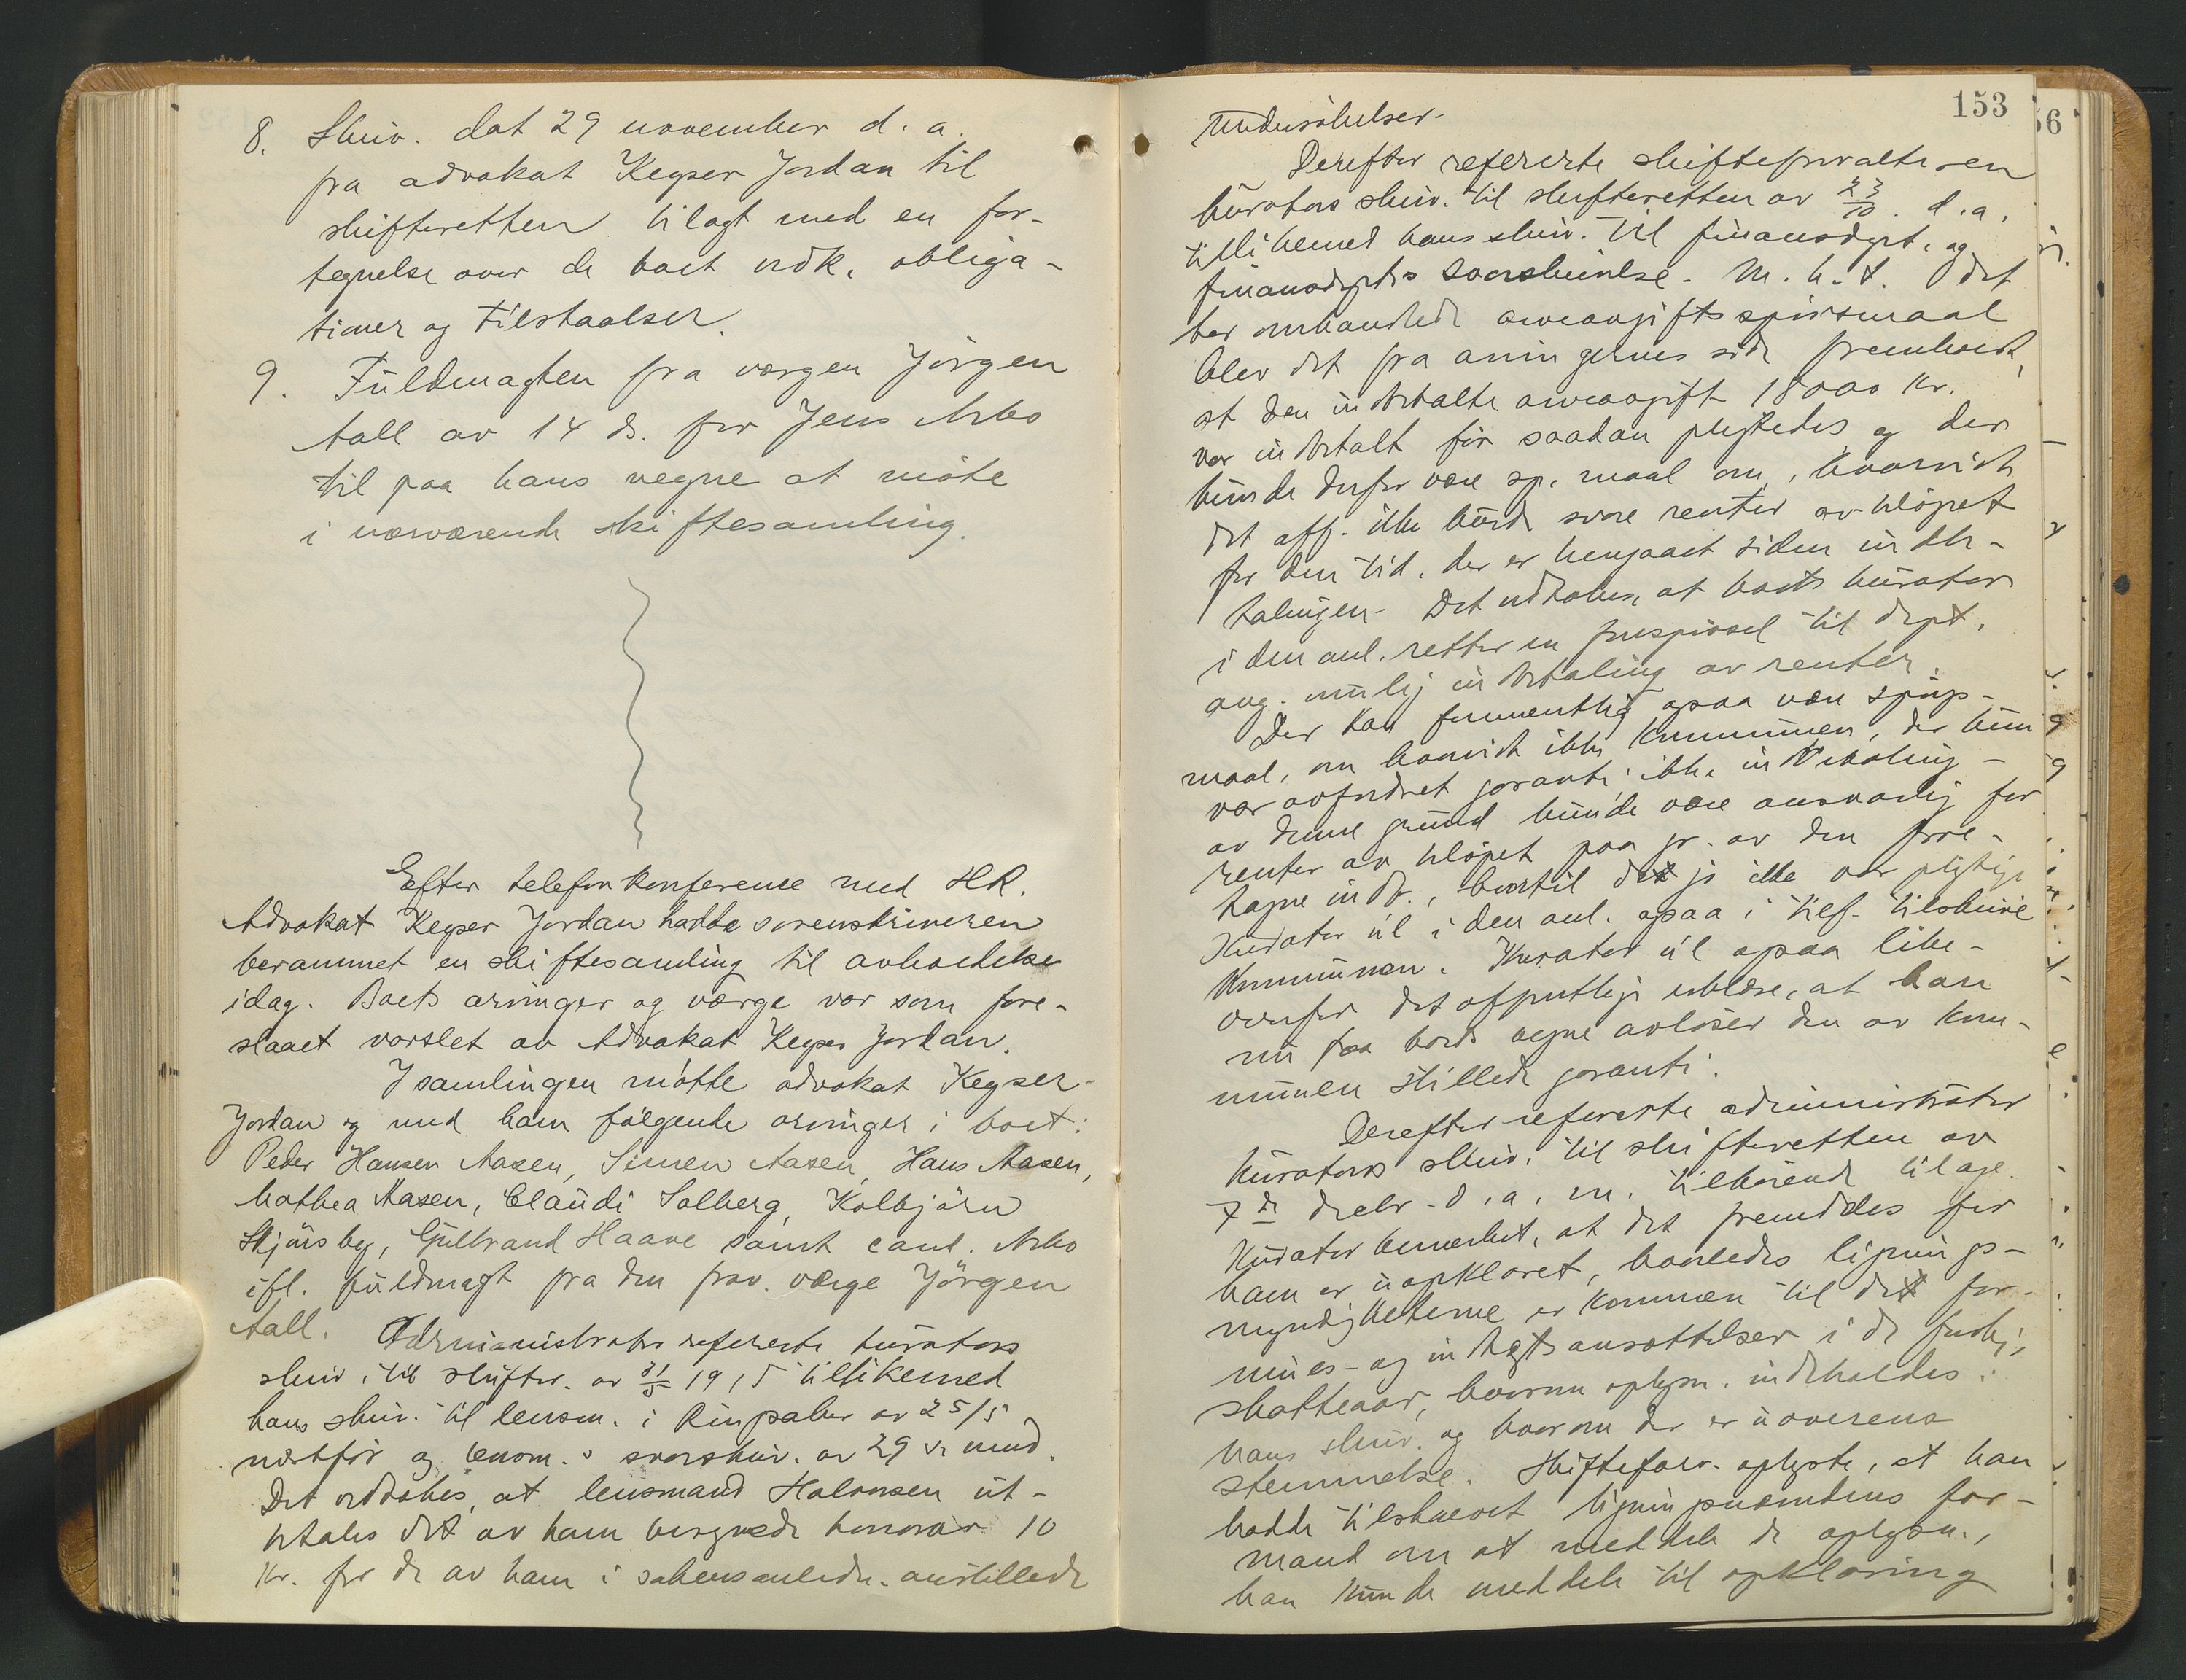 8. Skriv. dat 29 november d. a.
fra advokat Keyser Jordan til
skifteretten bilagt med en for-
tegnelse over de boet vedk. obliga-
tioner og tilstaaelser.
9. Fuldmagten fra vergen Jörgen
Aall av 14 ds. for Jens Arbo
til paa hans vegne at møte
i nærværende skiftesamling.
Efter telefonkonference med HR.
Advokat Keyser Jordan hadde sorenskriveren
berammet en skiftesamling til avholdelse
idag. Boets arvinger og værge var som fore-
slaaet varslet av Advokat Keyser Jordan.
I samlingen møtte advokat Keyser-
Jordan og med ham følgende arvinger i boet:
Peder Hansen Aasen, Simen Aasen, Hans Aasen,
Mathea Aasen, Claudi Solberg, Kolbjörn
Skjörsby, Gulbrand Haave samt cand. Arbo
ifl. fuldmagt fra den frav. værge Jörgen
Aall. Administrator refererte kurators
skriv. til skifter. av 31/5 1915 tillikemed
hans skriv. til lensm. i Ringsaker av 25/5
næstfør og lensm.s svarskriv. av 29 s. mnd.
Det vedtokes, at lensmand Halvorsen ut-
betales det av ham beregnede honorar 10
Kr. for de av ham i sakens anledn. anstillede
153
56
undersøkelser.
Derefter refererte skifteforvalteren
kurators skriv. til skifteretten av 23/10. d. a.
tillikemed hans skriv. til finansdept. og
finansdepts svarskrivelse. M. h. t. det
her omhandlede arveavgiftsspørsmaal
blev det fra arvingernes side fremholdt,
at den indbetalte arveavgift 18000 kr.
var indbetalt før saadan pligtedes og der
kunde derfor være sp.maal om, hvorvidt
det off. ikke burde svare renter av beløpet
for den tid, der er hengaaet siden indbe-
talingen. Det vedtokes, at boets kurator
i den anl. retter en forespørsel til dept.
ang. mulig indbetaling av renter.
Der kan formentlig ogsaa være spørs-
maal, om hvorvidt ikke kommunen, der kun
var avfordret garanti ikke indbetaling -
av denne grund kunde være ansvarlig for
renter av beløpet paa gr. av den fore-
tagne indb., hvortil det jo ikke var pligtig.
Kurator vil i den anl. ogsaa i tilf. tilskrive
Kommunen. Kurator vil ogsaa like-
overfor det offentlige erklære, at han
nu paa boets vegne avløser den av kom-
munen stillede garanti.
Derefter refererte administrator
kurators skriv. til skifteretten av
7de decbr. d. a. m. tilhørende bilage.
Kurator bemerket, at det fremdeles for
ham er uopklaret, hvorledes lignings-
myndigheterne er kommen til det for-
mues- og indtægtsansættelser i de forskj.
skatteaar, hvorom oplysn. indeholdes i
hans skriv. og hvorom der er uoverens
stemmelse. Skifteforv. oplyste, at han
hadde tilskrevet ligningsnæmdens for-
mand om at meddele de oplysn.,
han kunde meddele til opklaring